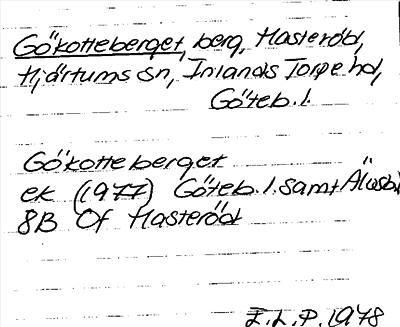 Gökotteberget, berg, Hasteröd,
Hjärtums sn, Inlands Torpe hd,
Göteb. l.
Gökotteberget
ek (1977) Göteb. l. samt Älvsb.
8B Of Hasteröd
E.L.P. 1978